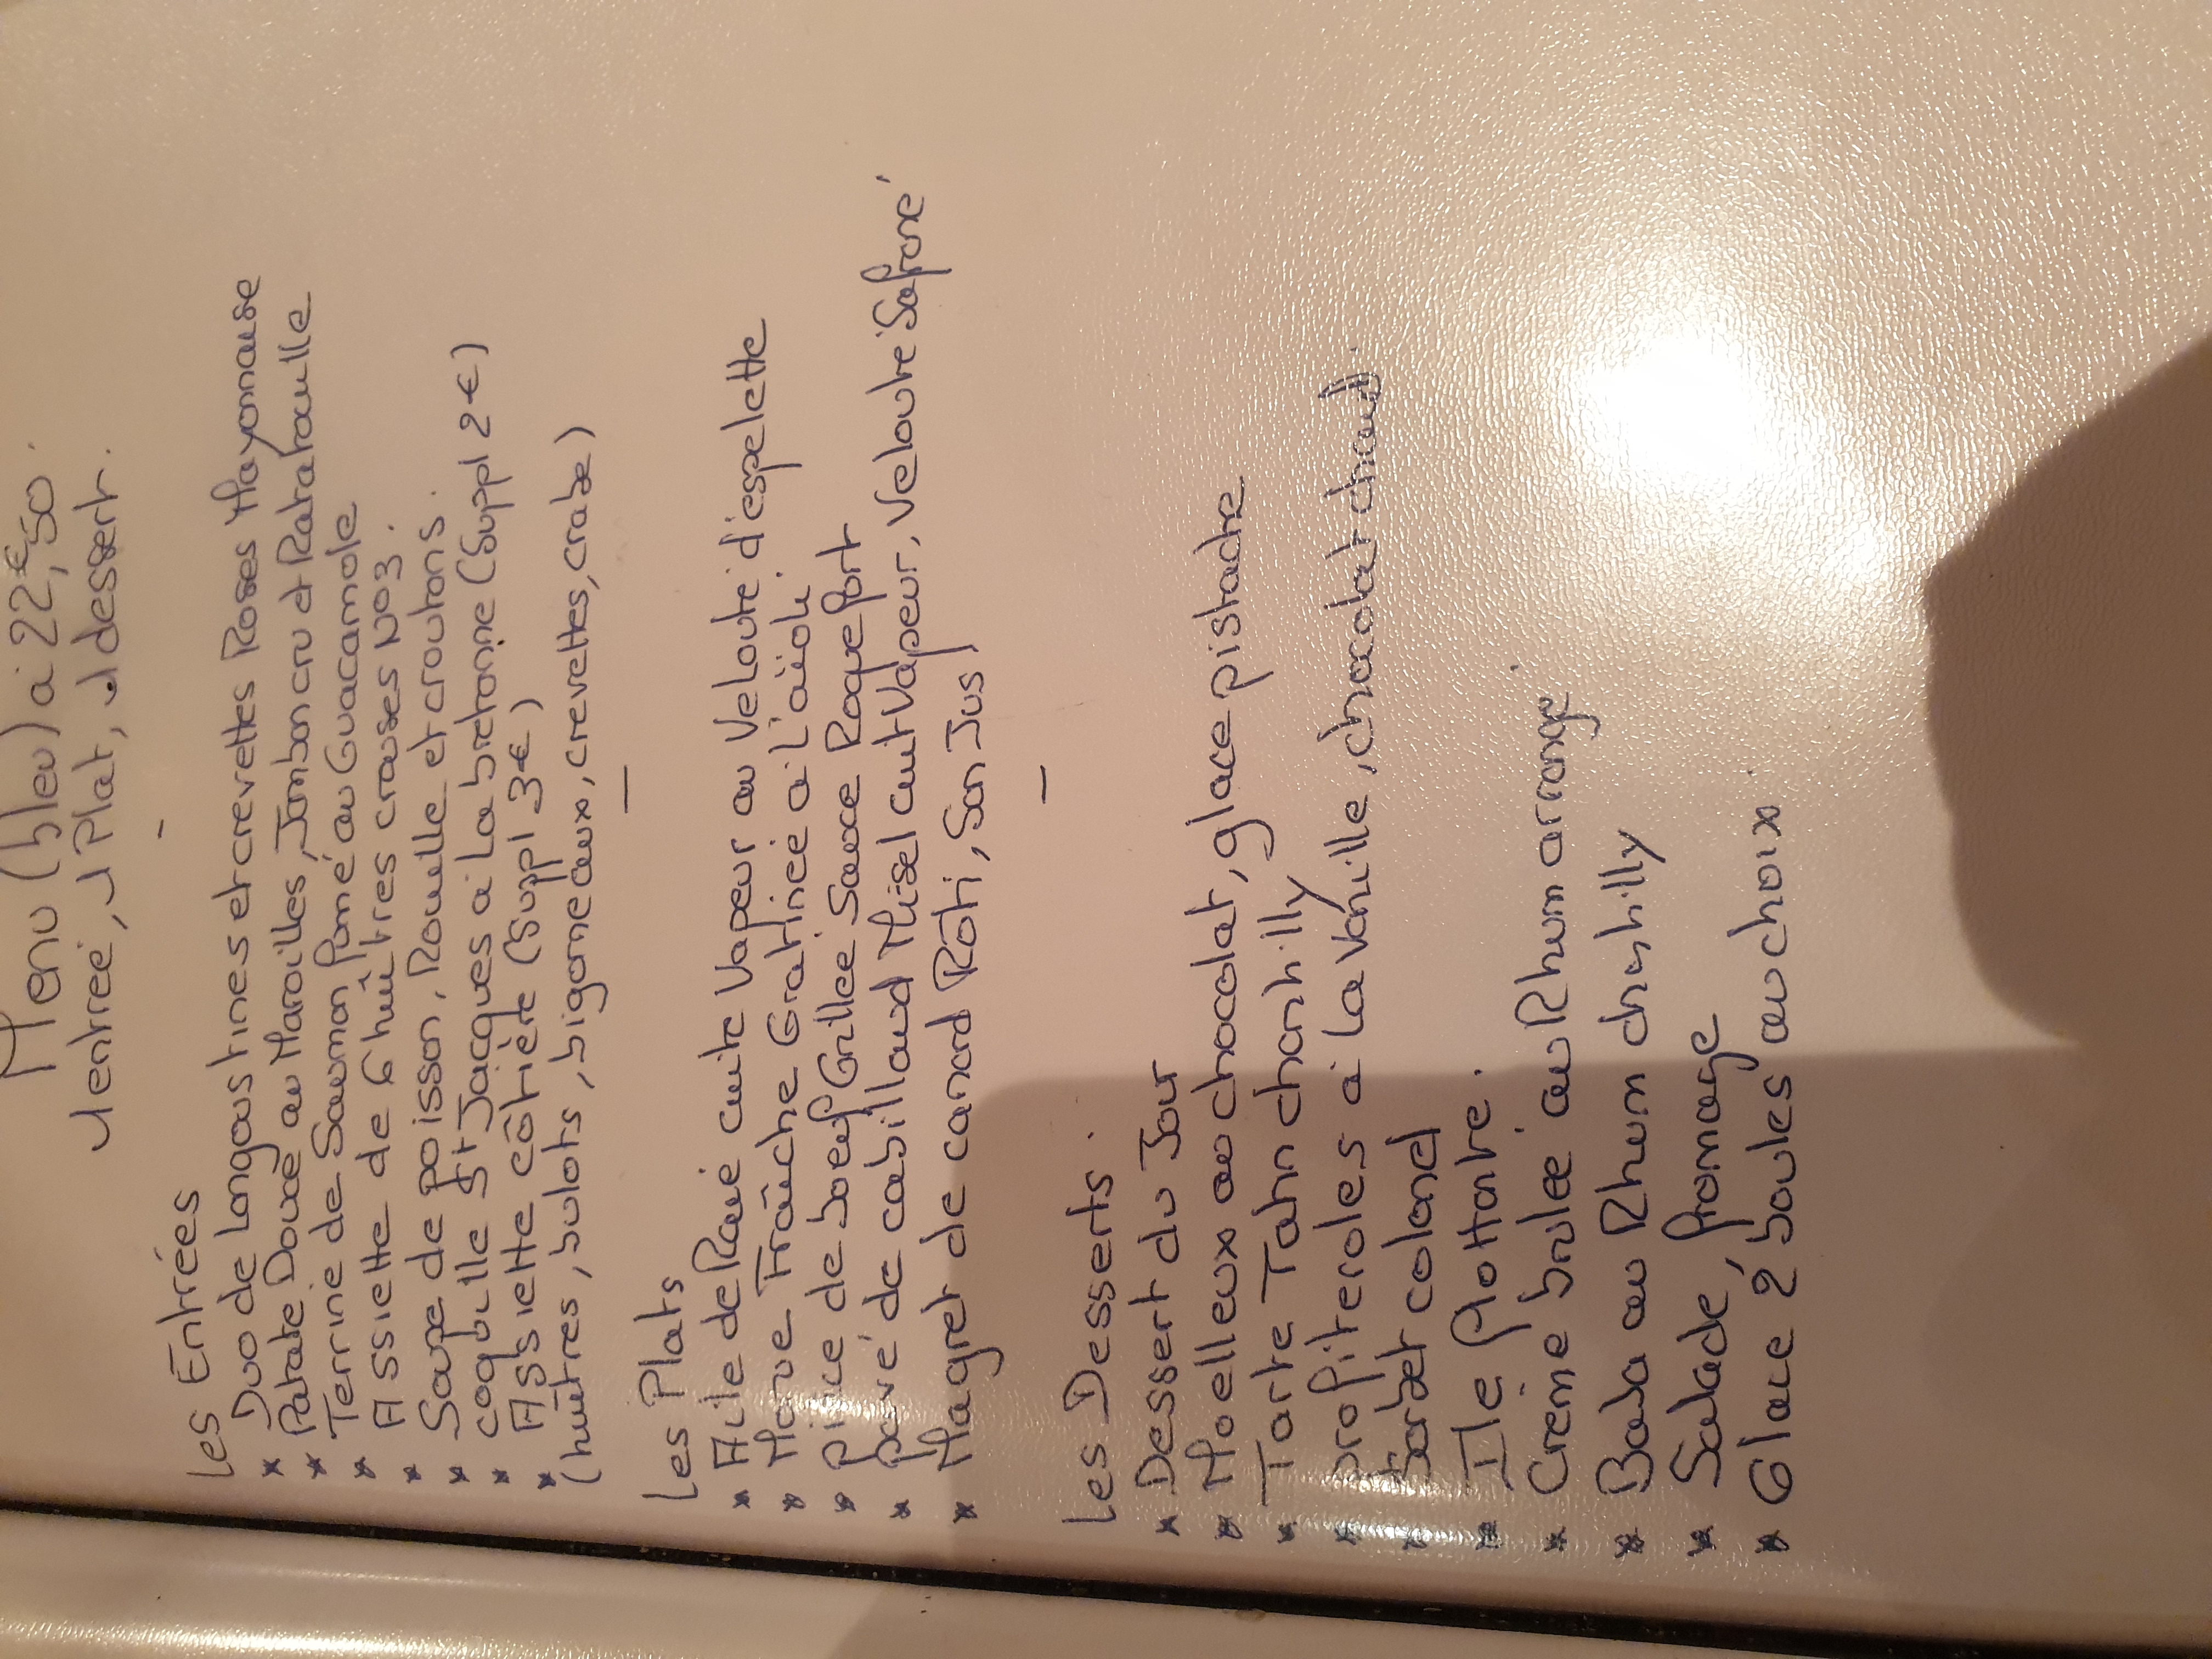 Menu (bleu) à 22,€50.
1 entrée, 1 Plat, 1 dessert.
Les Entrées
* Duo de Langoustines et crevettes Roses Mayonnaise
* Patate Douce au Maroilles, Jambon cru et Ratatouille
* Terrine de Saumon Pané au Guacamole
* Assiette de 6 huîtres creuses No3.
* Soupe de poisson, Rouille et croutons.
* coquille St Jacques à La bretonne (Suppl 2€)
* Assiette côtière (Suppl 3€)
(huîtres, bulots, bigorneaux, crevettes, crabe)
Les Plats
* Aile de Raie cuite Vapeur au Velouté d'espelette
* Morue Fraîche Gratinée à L'aïoli
* pièce de boeuf Grillée Sauce Roquefort
* pavé de cabillaud Miel cuit Vapeur, Velouté Safrané
* Magret de canard Rôti, Son Jus
Les Desserts.
* Dessert du Jour
* Moelleux au chocolat, glace pistache
* Tarte Tatin chantilly
* profiteroles à La Vanille, chocolat chaud.
* Sorbet colonel
* Ile flottante.
* Crème brulée au Rhum arrangé.
* Baba au Rhum chantilly
* Salade, fromage
* Glace 2 boules au choix.